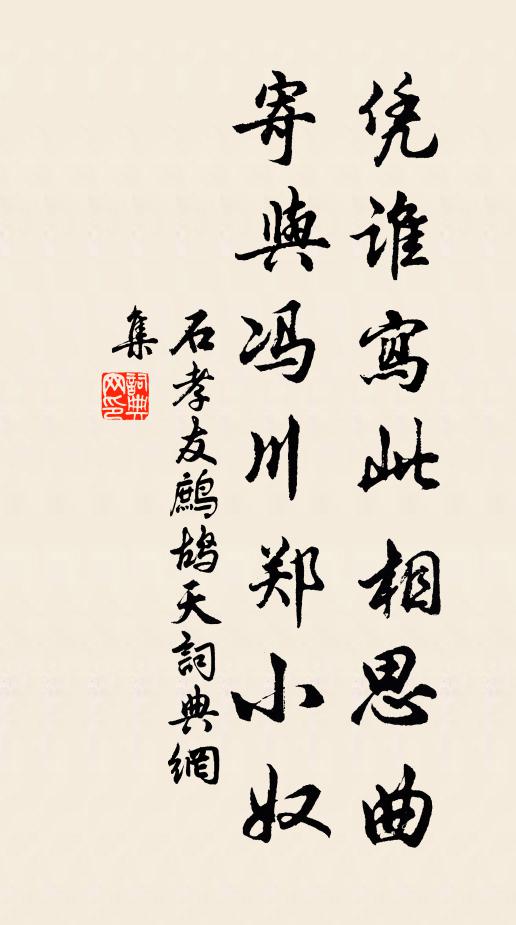 凭谁寫此相思曲
寄與冯川郑小奴
石孝友鷓鸪天詞典網
集
詞典
网印